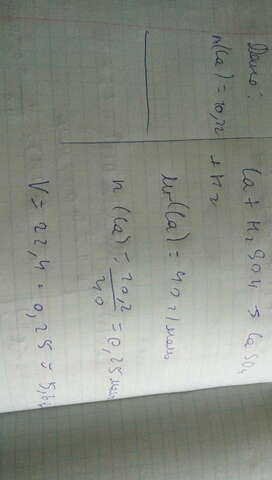 Дано:
m(Ca) = 10,2г
Ca + H2SO4 → CaSO4
+ H2
M(Ca) = 40 г/моль
n(Ca) = 10,2/40 = 0,25 моль
V = 22,4 · 0,25 = 5,6л